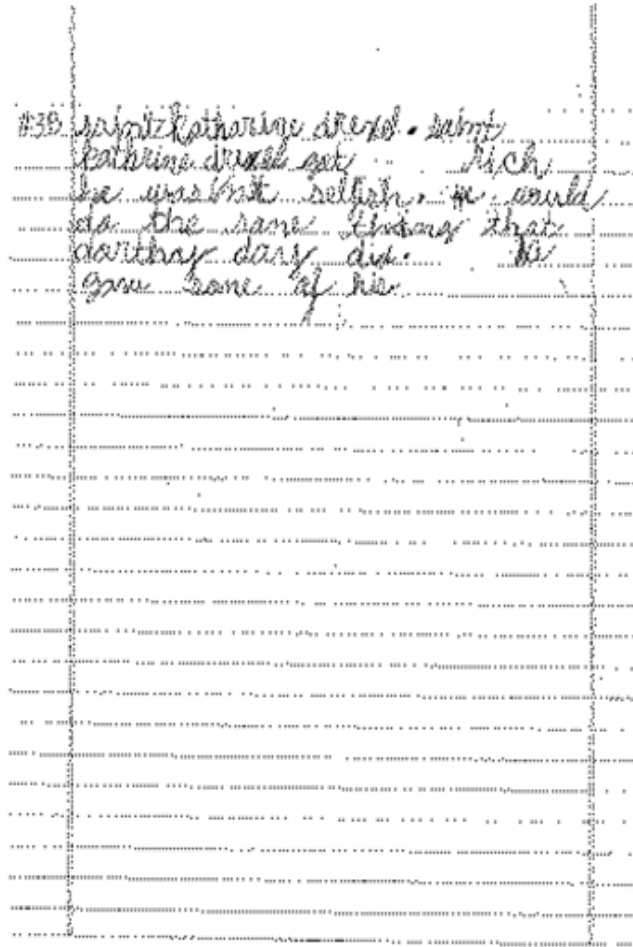 #3B saint katharine drexel. saint
kathrine drixel got rich
he wasn't selfish. he would
do the same thing that
dorthy day did. he
gave some of his